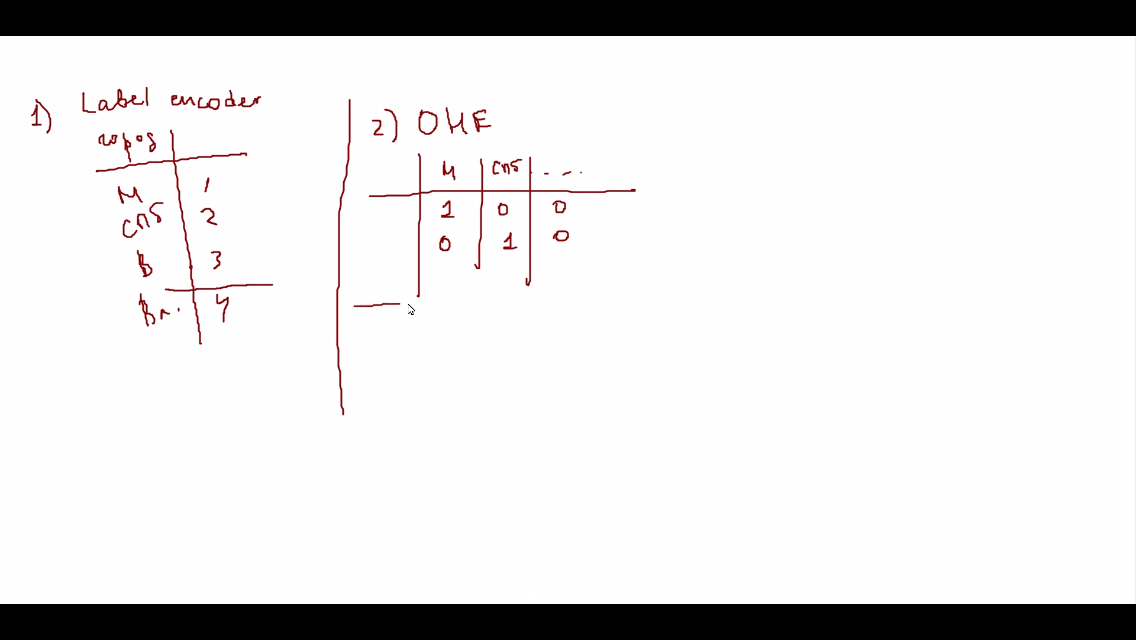 1) Label encoder
город
М 1
СПб 2
В 3
Вл. 4
2) OHE
М СПб ....
1 0 0
0 1 0